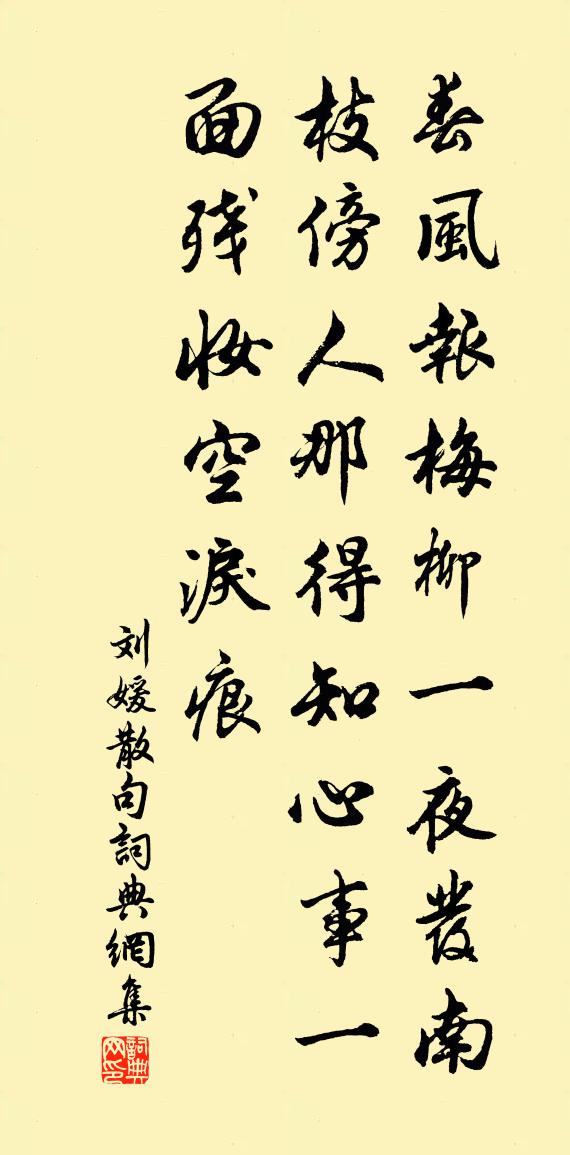 春風報梅柳一夜發南
枝傍人那得知心事一
面残妝空淚痕
刘媛散句詞典網集
詞典网印